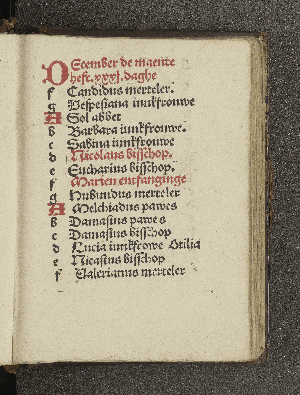 DEcember de maente
heft .xxxj. daghe
f Candidus merteler.
g Vespesiana iunkfrouwe
A Sol abbet
b Barbara iunkfrouwe.
c Sabina iunkfrouwe
d Nicolaus bisschop.
e Eucharius bisschop.
f Marien entfanginge
g Hubundus merteler
A Melchiadus pawes
b Damasius pawes
c Damasius bisschop
d Lucia iunkfrowe Otilia
e Nicasius bisschop
f Valerianus merteler